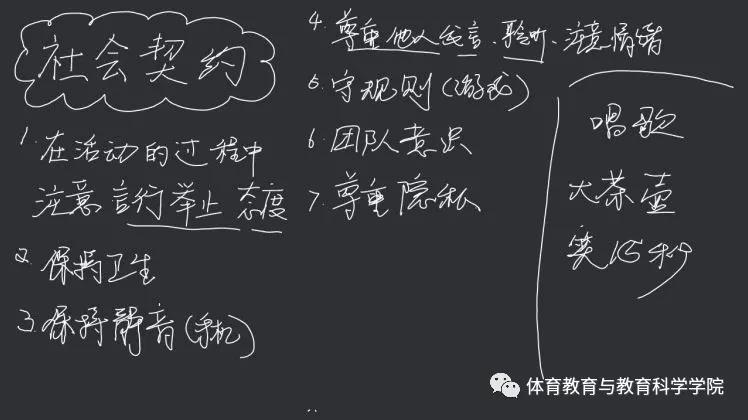 社会契约
1. 在活动的过程中
注意言行举止 态度
2. 保持卫生
3. 保持静音(手机)
4. 尊重他人发言、聆听、注意情绪
5. 守规则(游戏)
6. 团队意识
7. 尊重隐私
唱歌
大茶壶
笑15秒
体育教育与教育科学学院